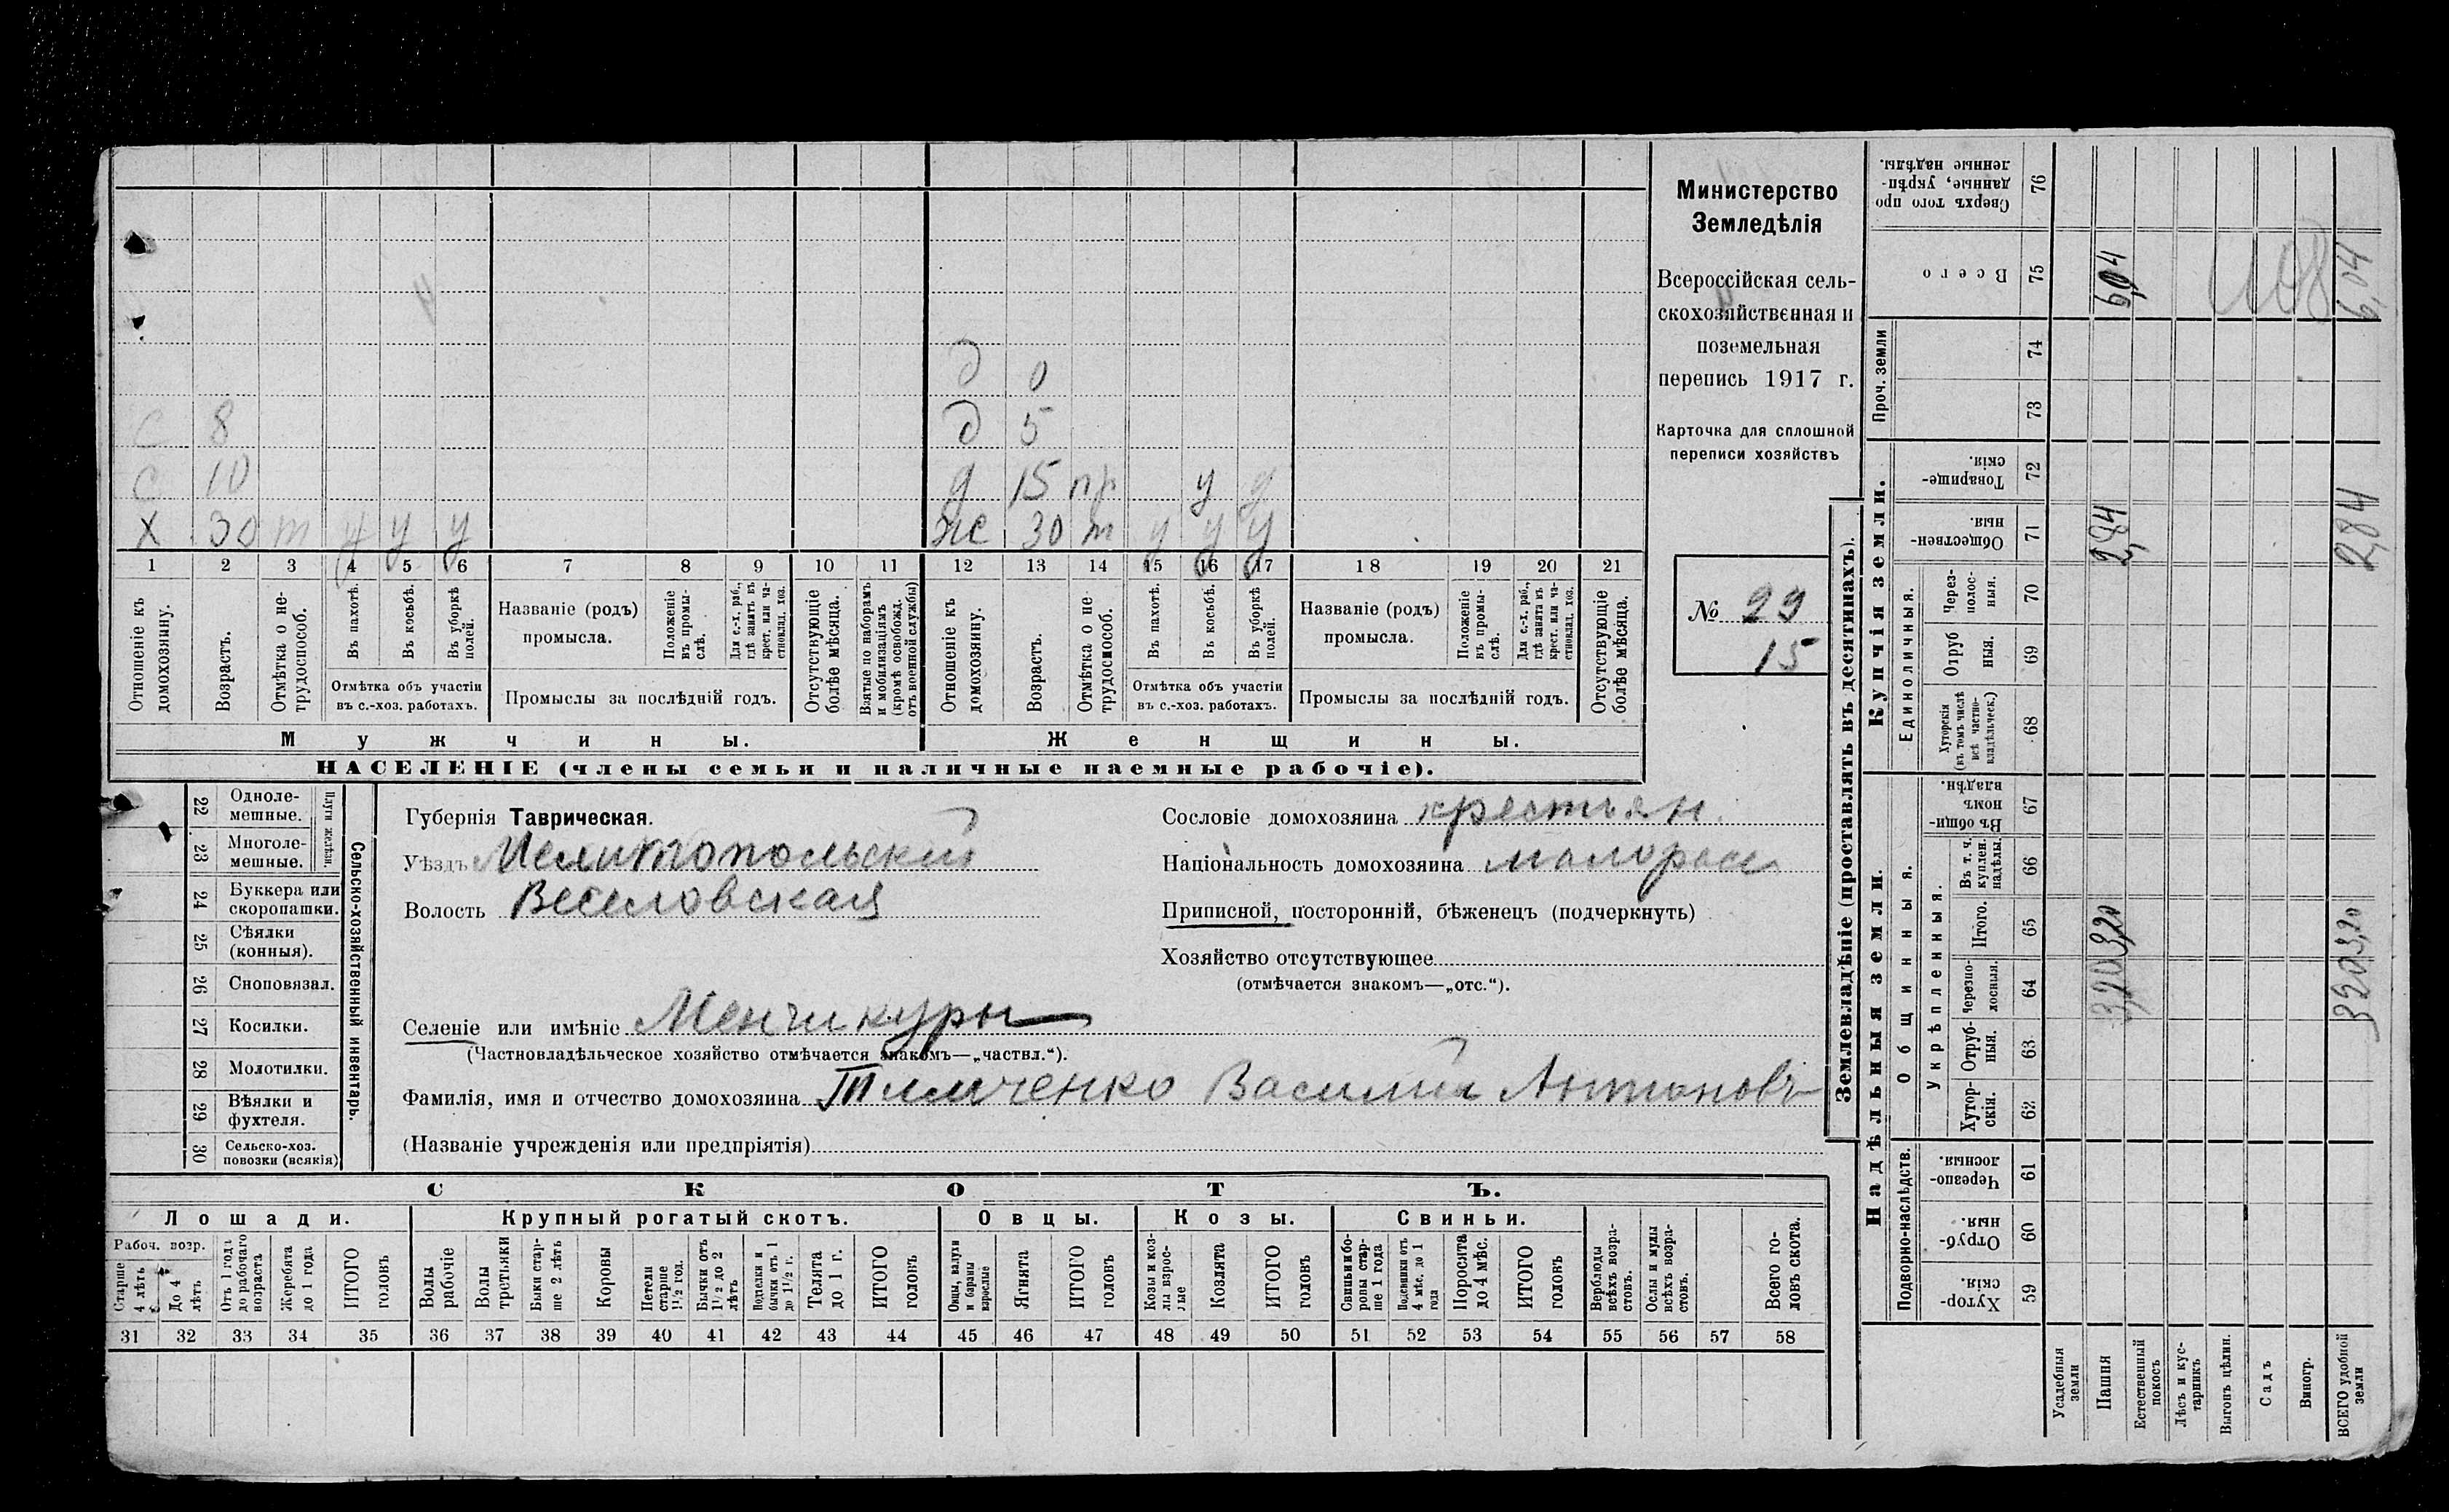 Министерство
Земледѣлія
Всероссійская сель-
скохозяйственная и
поземельная
перепись 1917 г.
Карточка для сплошной
переписи хозяйствъ
№ 29
15
д 0
С 8 д 5
С 10 д 15 пр у у
Х 30 т у у у же 30 т у у у
1 2 3 4 5 6 7 8 9 10 11 12 13 14 15 16 17 18 19 20 21
Отношеніе къ домохозяину.
Возрастъ.
Отмѣтка о не-трудоспособ.
Въ пахотѣ.
Въ косьбѣ.
Въ уборкѣ полей.
Отмѣтка объ участіи
въ с.-хоз. работахъ.
Названіе (родъ)
промысла.
Положеніе въ промы-слѣ.
Для с.-х. раб., гдѣ занятъ въ крест. или ча-стновлад. хоз.
Промыслы за послѣдній годъ.
Отсутствующіе болѣе мѣсяца.
Взятые по наборамъ и мобилизаціямъ (кромѣ освобожд. отъ военной службы)
Отношеніе къ домохозяину.
Возрастъ.
Отмѣтка о не-трудоспособ.
Въ пахотѣ.
Въ косьбѣ.
Въ уборкѣ полей.
Отмѣтка объ участіи
въ с.-хоз. работахъ.
Названіе (родъ)
промысла.
Положеніе въ промы-слѣ.
Для с.-х. раб., гдѣ занята въ крест. или ча-стновлад. хоз.
Промыслы за послѣдній годъ.
Отсутствующіе болѣе мѣсяца.
Мужчины. Женщины.
НАСЕЛЕНІЕ (члены семьи и наличные наемные рабочіе).
22 Одноле-мешные.
23 Многоле-мешные.
Плуги желѣзн.
24 Буккера или скоропашки.
25 Сѣялки (конныя).
26 Сноповязал.
27 Косилки.
28 Молотилки.
29 Вѣялки и фухтеля.
30 Сельско-хоз. повозки (всякія)
Сельско-хозяйственный инвентарь.
Губернія Таврическая.
Уѣздъ Мелитопольскій
Волость Веселовская
Сословіе домохозяина крестьян.
Національность домохозяина малоросс
Приписной, посторонній, бѣженецъ (подчеркнуть)
Хозяйство отсутствующее
(отмѣчается знакомъ—„отс.“).
Селеніе или имѣніе Менчикуры
(Частновладѣльческое хозяйство отмѣчается знакомъ—„частвл.“).
Фамилія, имя и отчество домохозяина Тимченко Василий Антоновъ
(Названіе учрежденія или предпріятія)
СКОТЪ.
Лошади. Крупный рогатый скотъ. Овцы. Козы. Свиньи.
Рабоч. возр.
Старше 4 лѣтъ
До 4 лѣтъ
Отъ 1 года до рабочаго возраста
Жеребята до 1 года
ИТОГО головъ
Волы рабочіе
Волы третьяки
Быки стар-ше 2 лѣтъ
Коровы
Петели старше 1½ год.
Бычки отъ 1½ до 2 лѣтъ
Подтелки и бычки отъ 1 до 1½ г.
Телята до 1 г.
ИТОГО головъ
Овцы, валухи и бараны взрослые
Ягнята
ИТОГО головъ
Козы и коз-лы взрос-лые
Козлята
ИТОГО головъ
Свиньи и бо-ровы стар-ше 1 года
Подсвинки отъ 4 мѣс. до 1 года
Поросята до 4 мѣс.
ИТОГО головъ
Верблюды всѣхъ возра-стовъ.
Ослы и мулы всѣхъ возра-стовъ.
Всего го-ловъ скота.
31 32 33 34 35 36 37 38 39 40 41 42 43 44 45 46 47 48 49 50 51 52 53 54 55 56 57 58
Землевладѣніе (проставлять въ десятинахъ).
Надѣльныя земли. Купчія земли.
Подворно-наслѣдств.
Общинныя.
Укрѣпленныя.
Единоличныя.
Проч. земли
Хутор-скія. 59
Отруб-ныя. 60
Черезпо-лосныя. 61
Хутор-скія. 62
Отруб-ныя. 63
Черезпо-лосныя. 64
Итого. 65
Въ т. ч. куплен. надѣлы. 66
Въ общин-номъ владѣн. 67
Хуторскія (въ томъ числѣ всѣ частно-владѣльческ.) 68
Отруб ныя. 69
Через-полос-ныя. 70
Обществен-ныя. 71
Товарище-скія. 72
73
74
Всего 75
Сверхъ того про данные, укрѣп-ленные надѣлы. 76
Усадебныя земли
Пашня 3,20 3,20 2,84 6,04
Естественный покосъ
Лѣсъ и кус-тарникъ
Выгонъ цѣлин.
Садъ
Виногр.
ВСЕГО удобной земли 3 20 3,20 2,84 6,04